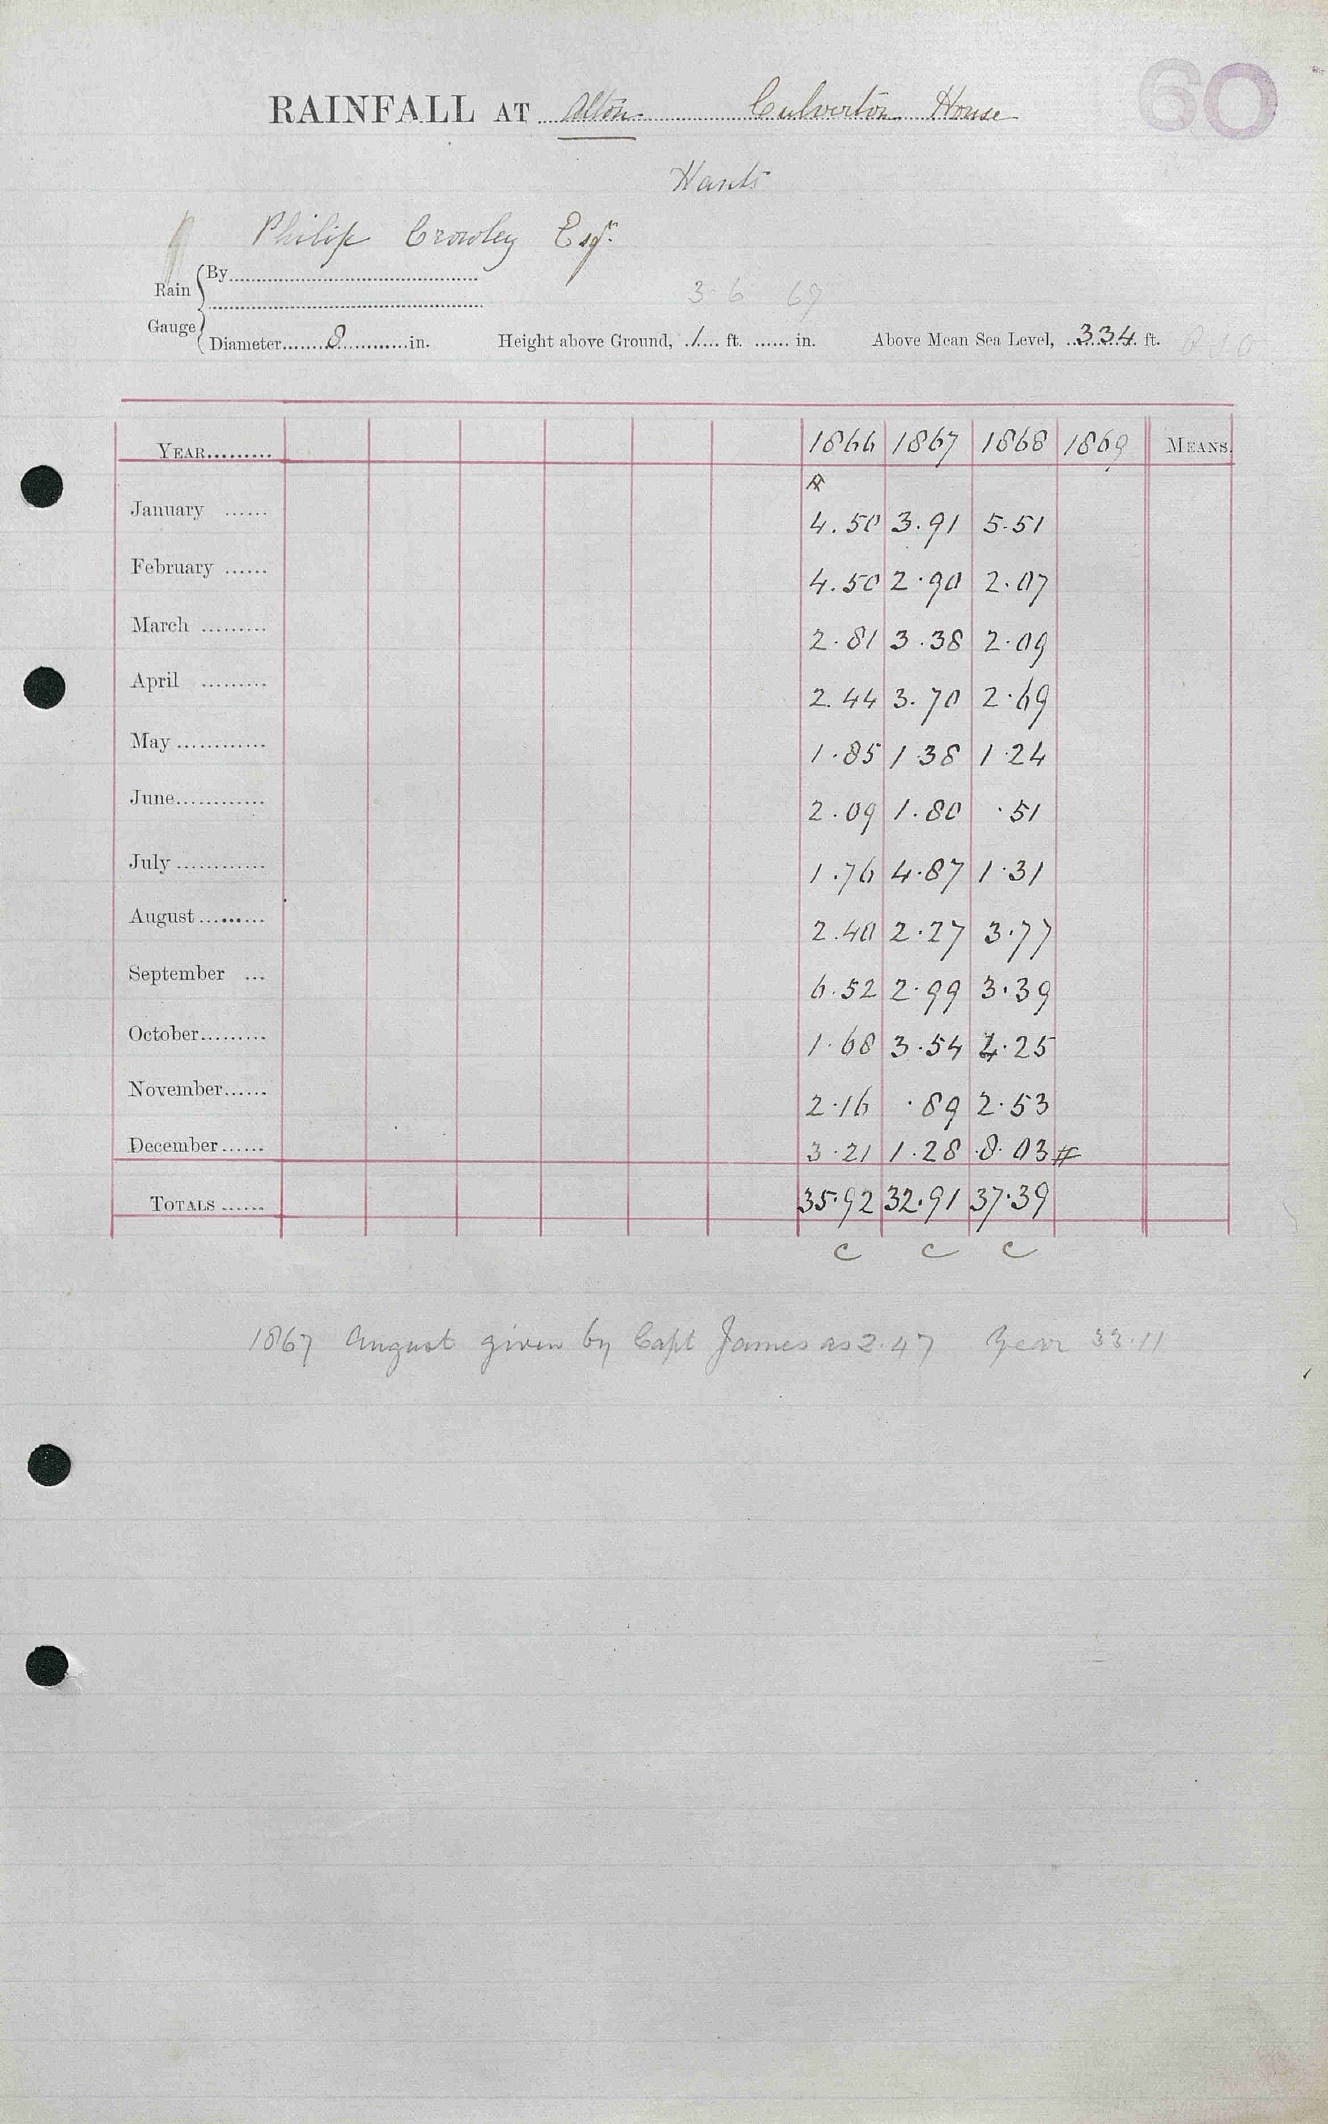 60
RAINFALL AT Alton Culverton House
Hants
Philip Crowley Esqr.
Rain Gauge { By
3 · 6 67
Diameter 8 in. Height above Ground, 1 ft. in. Above Mean Sea Level, 334 ft.
YEAR 1866 1867 1868 1869 MEANS.
January 4.50 3.91 5.51
February 4.50 2.90 2.07
March 2.81 3.38 2.09
April 2.44 3.70 2.69
May 1.85 1 38 1.24
June 2.09 1.80 .51
July 1.76 4.87 1.31
August 2.40 2.27 3.77
September 6.52 2.99 3.39
October 1.68 3.54 4.25
November 2.16 .89 2.53
December 3.21 1.28 8.03 #
TOTALS 35.92 32.91 37.39
c c c
1867 August given by Capt James as 2.47 Year 33.11